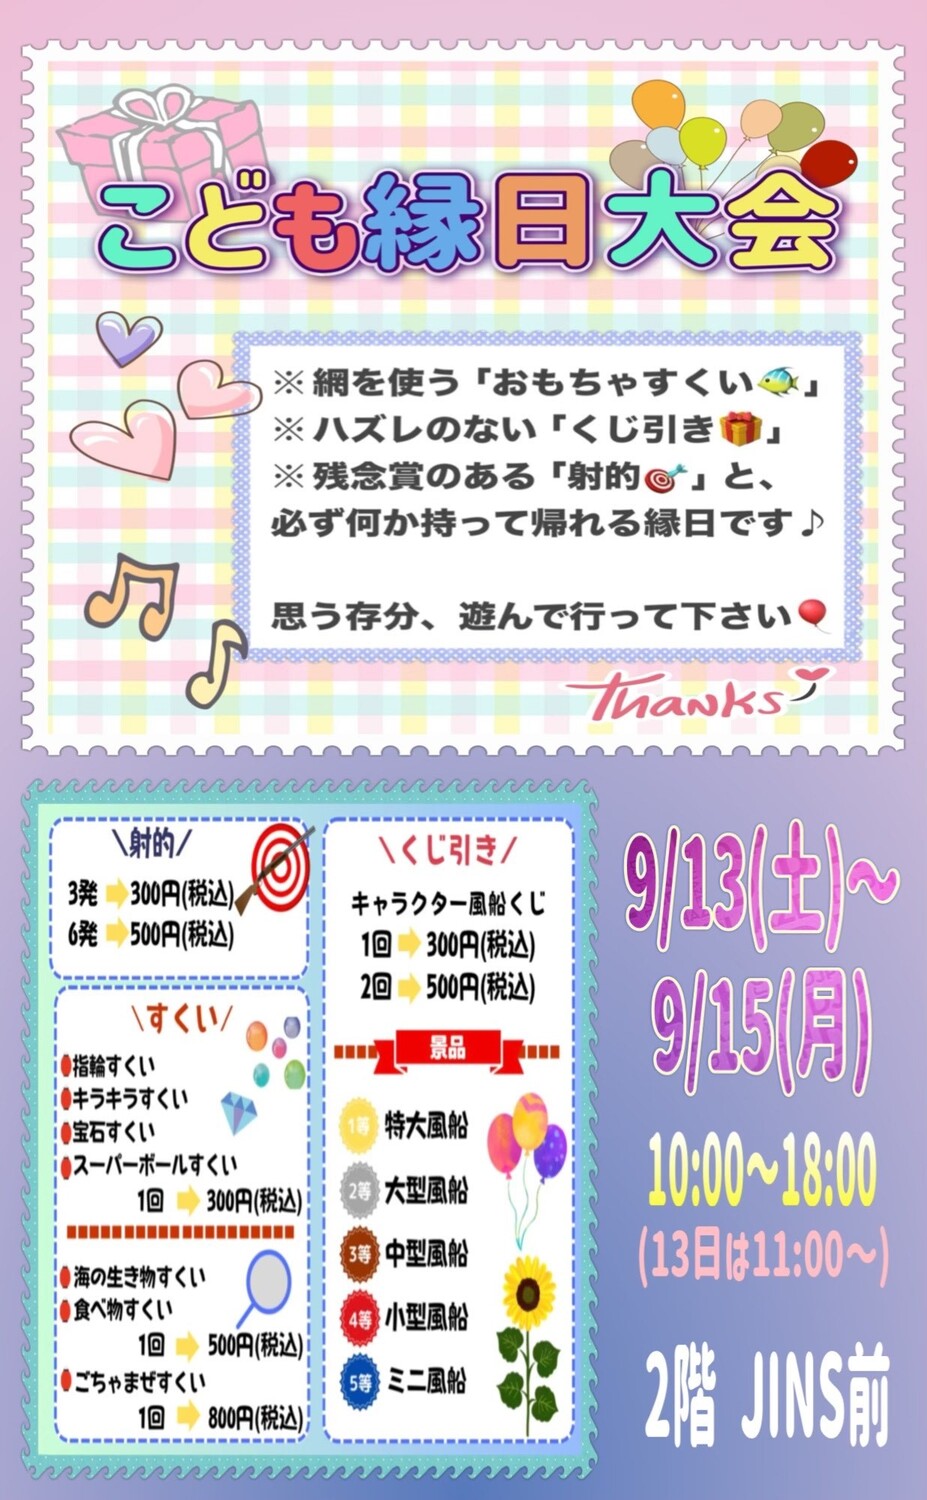 こども縁日大会
※網を使う「おもちゃすくい🐠」
※ハズレのない「くじ引き🎁」
※残念賞のある「射的🎯」と、
必ず何か持って帰れる縁日です♪
思う存分、遊んで行って下さい🎈
Thanks
\射的/
3発➡300円(税込)
6発➡500円(税込)
\すくい/
指輪すくい
キラキラすくい
宝石すくい
スーパーボールすくい
1回➡300円(税込)
海の生き物すくい
食べ物すくい
1回➡500円(税込)
ごちゃまぜすくい
1回➡800円(税込)
\くじ引き/
キャラクター風船くじ
1回➡300円(税込)
2回➡500円(税込)
景品
1等 特大風船
2等 大型風船
3等 中型風船
4等 小型風船
5等 ミニ風船
9/13(土)～
9/15(月)
10:00～18:00
(13日は11:00～)
2階 JINS前